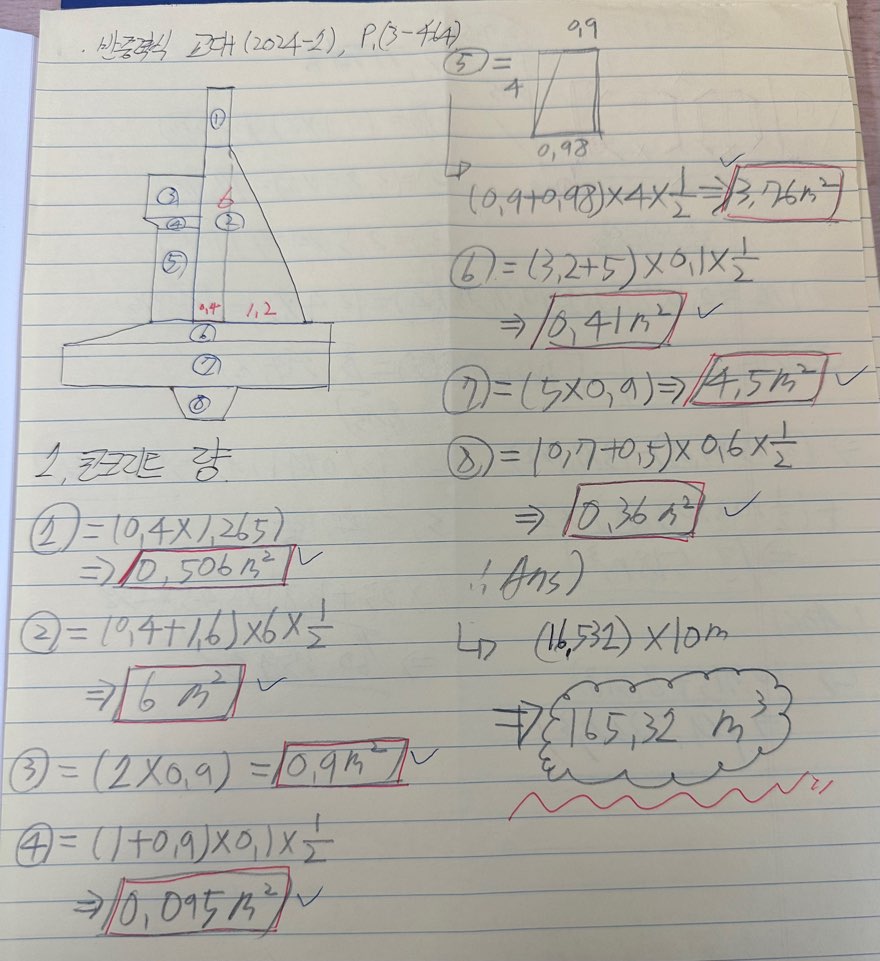 . 반중력식 교대 (2024-2), P.(3-464)
①
③
6
④
②
⑤
0,4 1,2
⑥
⑦
⑧
1. 콘크리트 량
① = (0,4×1,265)
⇒ 0,506m² ✓
② = (0,4+1,6)×6×1/2
⇒ 6 m² ✓
③ = (2×0,9) = 0,9m² ✓
④ = (1+0,9)×0,1×1/2
⇒ 0,095m² ✓
⑤ =
0,9
4
0,98
(0,9+0,98)×4×1/2 ⇒ 3,76m² ✓
⑥ = (3,2+5)×0,1×1/2
⇒ 0,41m² ✓
⑦ = (5×0,9) ⇒ 4,5m² ✓
⑧ = (0,7+0,5)×0,6×1/2
⇒ 0,36m² ✓
∴ Ans)
↳ (16,532)×10m
⇒ 165,32 m³